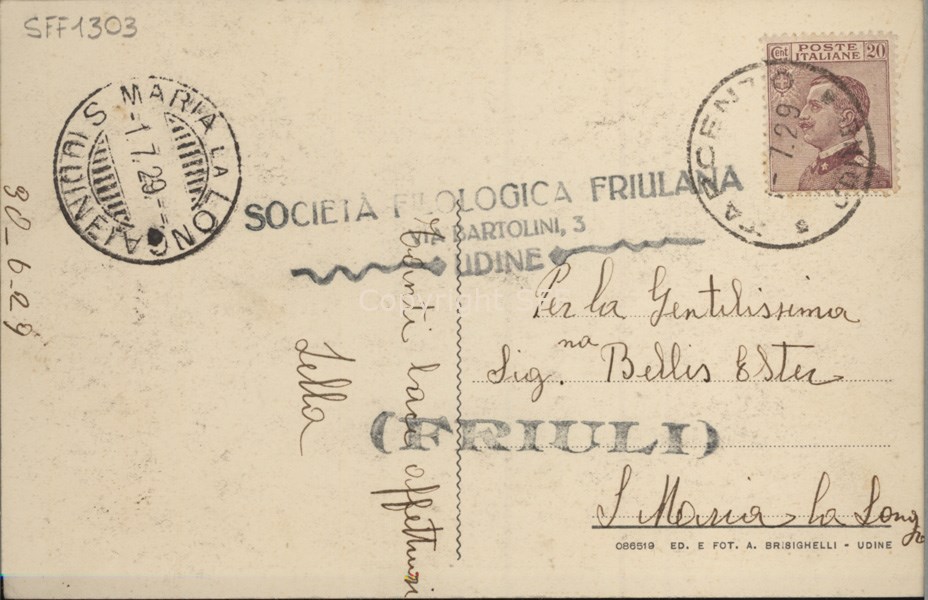 SFF1303
POSTE ITALIANE
Cent 20
S. MARIA LA LONGA
1.7.29
TARCENTO
7.29
SOCIETÀ FILOLOGICA FRIULANA
VIA BARTOLINI, 3
UDINE
Copyright
30-6-29
baci affettuosi
Lella
Per la Gentilissima
Sig.na Bellis Ester
(FRIULI)
S Maria la Longa
086519 ED. E FOT. A. BRISIGHELLI - UDINE